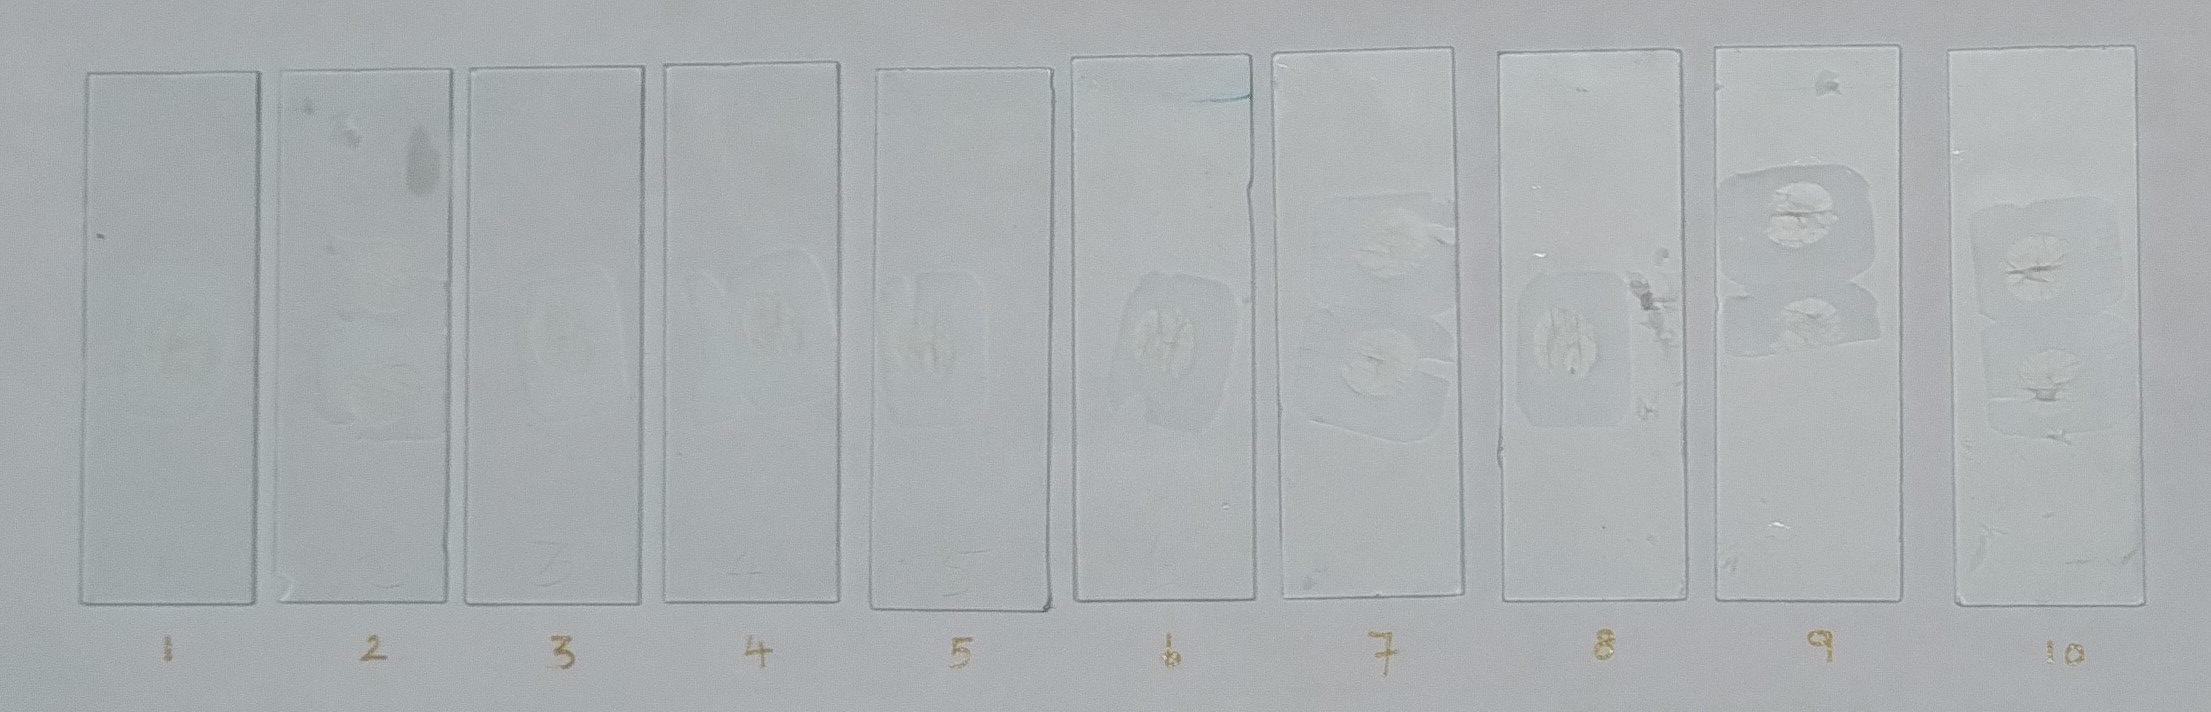 3 5
1 2 3 4 5 6 7 8 9 10